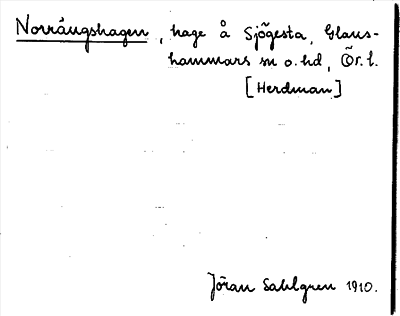 Norrängshagen, hage å Sjögesta, Glans-
hammars sn o. hd, Ör. l.
[Herdman]
Jöran Sahlgren 1910.